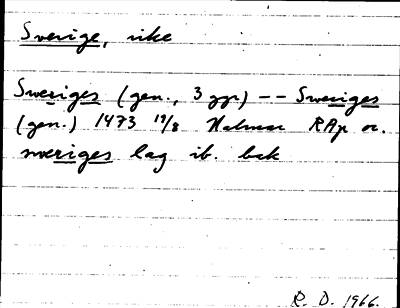 Sverige, rike
Sweriges (gen., 3 ggr) -- Sweriges
(gen.) 1473 19/8 Kalmar RAp or.
sweriges lag ib. bak
R. D. 1966.